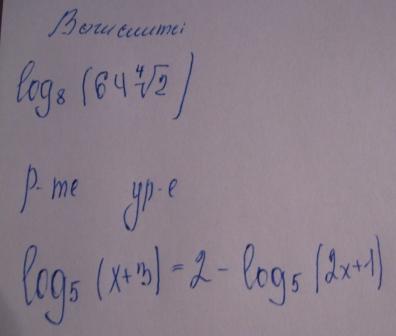 Вычислите:
log₈ (64 ⁴√2)
р-те ур-е
log₅ (x+3) = 2 - log₅ (2x+1)